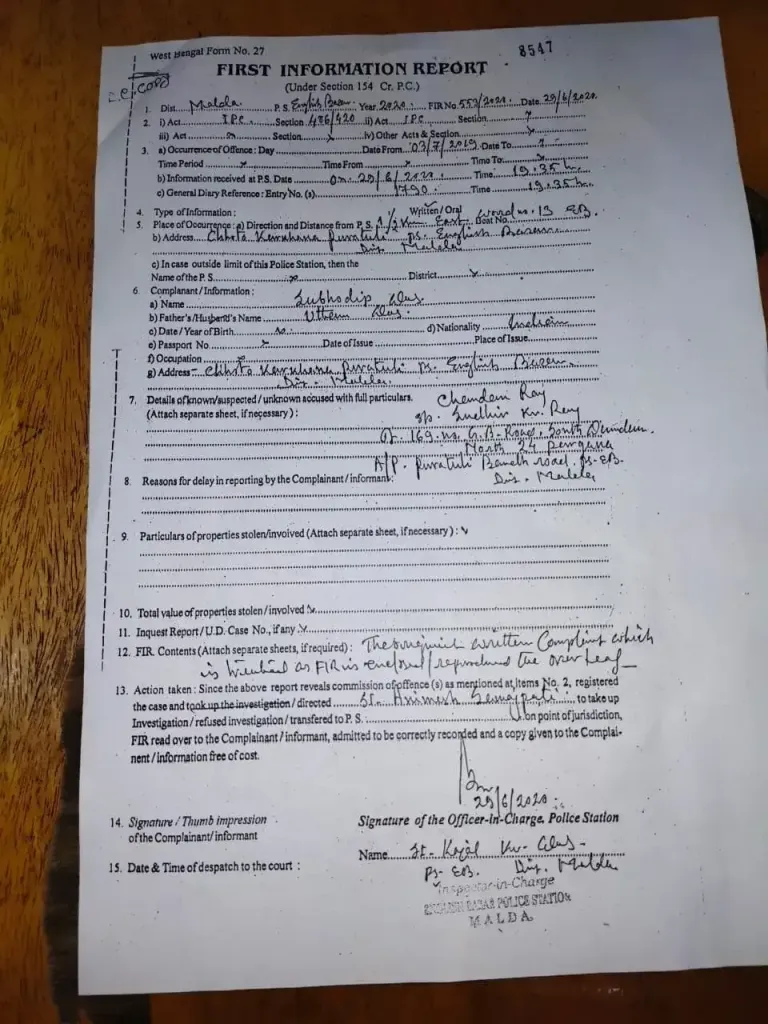 West Bengal Form No. 27
8547
FIRST INFORMATION REPORT
(Under Section 154 Cr. P.C.)
1. Dist. Malda P.S. English Bazar Year 2020. FIR No. 553/2020. Date 29/6/2020.
2. i) Act I.P.C Section 406/420 ii) Act I.P.C Section
iii) Act Section iv) Other Acts & Section
3. a) Occurrence of Offence: Day Date From 03/7/2019 Date To
Time Period Time From Time To
b) Information received at P.S. Date On 29/6/2020 Time 19.35 hr.
c) General Diary Reference: Entry No. (s) 1790 Time 19.35 hr.
4. Type of Information: Written / Oral
5. Place of Occurrence: a) Direction and Distance from P.S. 1/2 Km East Beat No. Ward no. 13 EB.
b) Address Chhoto Karkhana Puratuli PS. English Bazar
Dis. Malda
c) In case outside limit of this Police Station, then the
Name of the P.S. District
6. Complanant / Information:
a) Name Subhodip das
b) Father's/Husband's Name Uttam das.
c) Date / Year of Birth d) Nationality Indian
e) Passport No. Date of Issue Place of Issue
f) Occupation
g) Address Chhoto Karkhana Puratuli PS. English Bazar
Dis. Malda
7. Details of known/suspected / unknown accused with full particulars. Chandan Ray
(Attach separate sheet, if necessary): S/o. Sudhir Kr. Ray
169. no. G.B. Road, South Dumdum.
North 24 pargana
A/P. Puratuli road. PS-EB.
8. Reasons for delay in reporting by the Complainant / informant: Dis. Malda
9. Particulars of properties stolen/involved (Attach separate sheet, if necessary):
10. Total value of properties stolen / involved
11. Inquest Report / U.D. Case No., if any
12. FIR. Contents (Attach separate sheets, if required): The original written Complaint which
is treated as FIR is enclosed/reproduced the over leaf
13. Action taken: Since the above report reveals commission of offence (s) as mentioned at Items No. 2, registered
the case and took up the investigation / directed SI. Animesh to take up
Investigation / refused investigation / transfered to P.S. on point of jurisdiction,
FIR read over to the Complainant / informant, admitted to be correctly recorded and a copy given to the Complai-
nent / information free of cost.
29/6/2020
14. Signature / Thumb impression
of the Complainant/ informant
Signature of the Officer-In-Charge, Police Station
Name Kajal Kr. das
15. Date & Time of despatch to the court :
PS- EB. Dis. Malda
Inspector-in-Charge
ENGLISH BAZAR POLICE STATION
MALDA